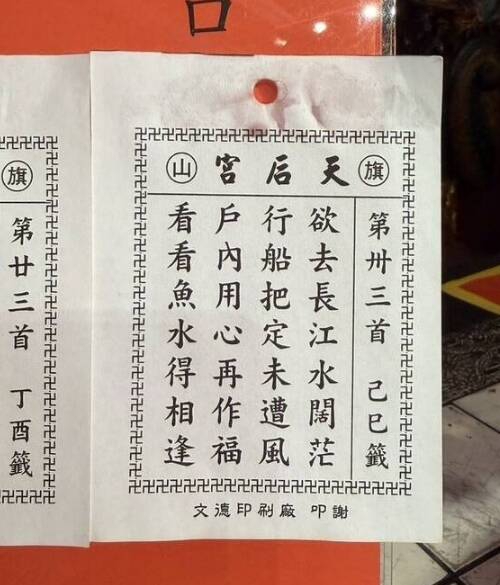 旗天后宮山
第卅三首 己巳籤
欲去長江水闊茫
行船把定未遭風
戶內用心再作福
看看魚水得相逢
文德印刷廠 叩謝
旗
第廿三首 丁酉籤